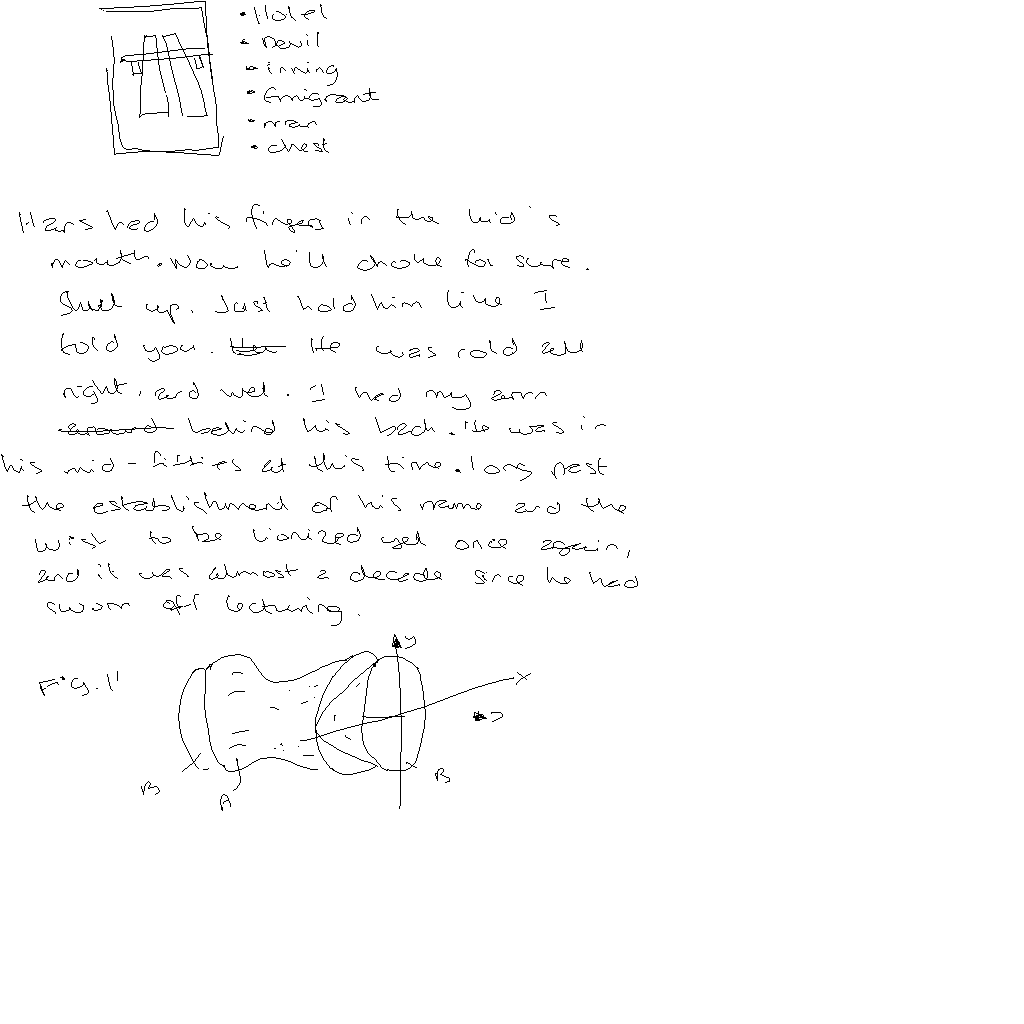 • Hotel
• Devil
• inning
• Emigrant
• man
• chest
Hans had his fingers in the kid's
mouth. Now he'll choke for sure.
Shut up. Just hold him like I
told you. He was cold all
right, and wet. I had my arm
around behind his back. He was in
his mid-fifties at this time. long past
the establishment of his name and the
wish to be lionized yet once again,
and it was almost a decade since he had
sworn off lecturing.
y
Fig. 1
x
B
B
A